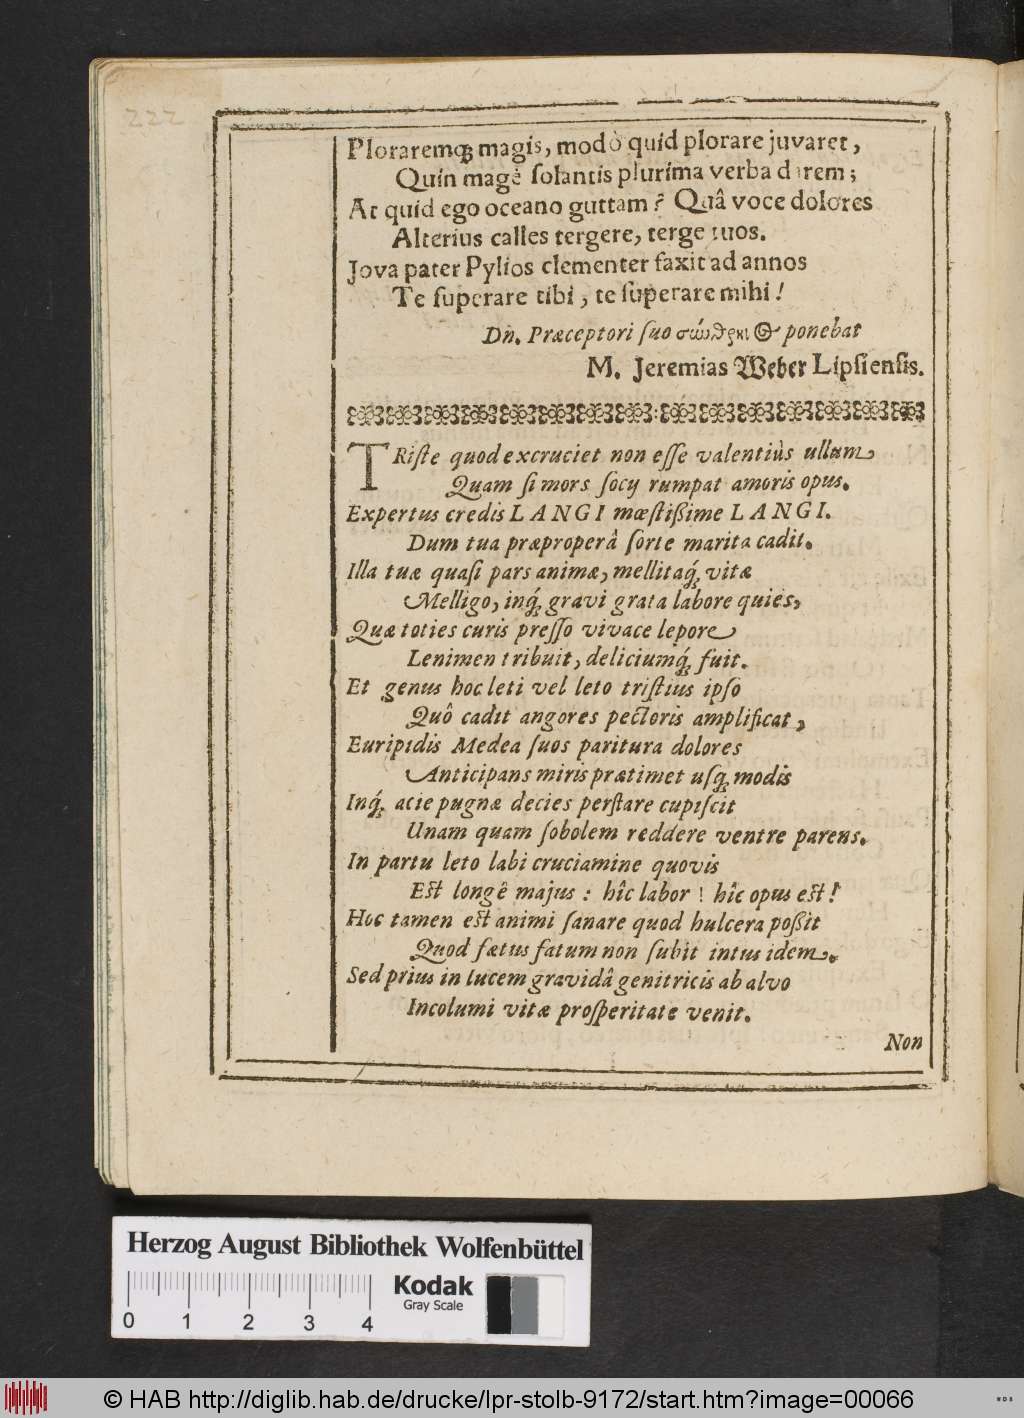 222
Ploraremq́; magis, modò quid plorare juvaret,
Quin magè ſolantis plurima verba darem;
At quid ego oceano guttam? Quâ voce dolores
Alterius calles tergere, terge tuos.
Jova pater Pylios clementer faxit ad annos
Te ſuperare tibi, te ſuperare mihi!
Dn. Præceptori ſuo ponebat
M. Jeremias Weber Lipſienſis.
TRiſte quod excruciet non eſſe valentiùs ullum
Quam ſi mors ſocij rumpat amoris opus.
Expertus credis LANGI mœſtißime LANGI.
Dum tua præproperâ ſorte marita cadit.
Illa tuæ quaſi pars animæ, mellitaq́; vitæ
Melligo, inq́; gravi grata labore quies,
Quæ toties curis preſſo vivace lepore
Lenimen tribuit, deliciumq́; fuit.
Et genus hoc leti vel leto triſtius ipſo
Quô cadit angores pectoris amplificat,
Euripidis Medea ſuos paritura dolores
Anticipans miris prætimet uſq; modis
Inq́; acie pugnæ decies perſtare cupiſcit
Unam quam ſobolem reddere ventre parens.
In partu leto labi cruciamine quovis
Eſt longê majus: hîc labor! hîc opus eſt!
Hoc tamen eſt animi ſanare quod hulcera poßit
Quod fætus fatum non ſubit intus idem.
Sed prius in lucem gravidâ genitricis ab alvo
Incolumi vitæ proſperitate venit.
Non
Herzog August Bibliothek Wolfenbüttel
Kodak
Gray Scale
0 1 2 3 4
© HAB http://diglib.hab.de/drucke/lpr-stolb-9172/start.htm?image=00066